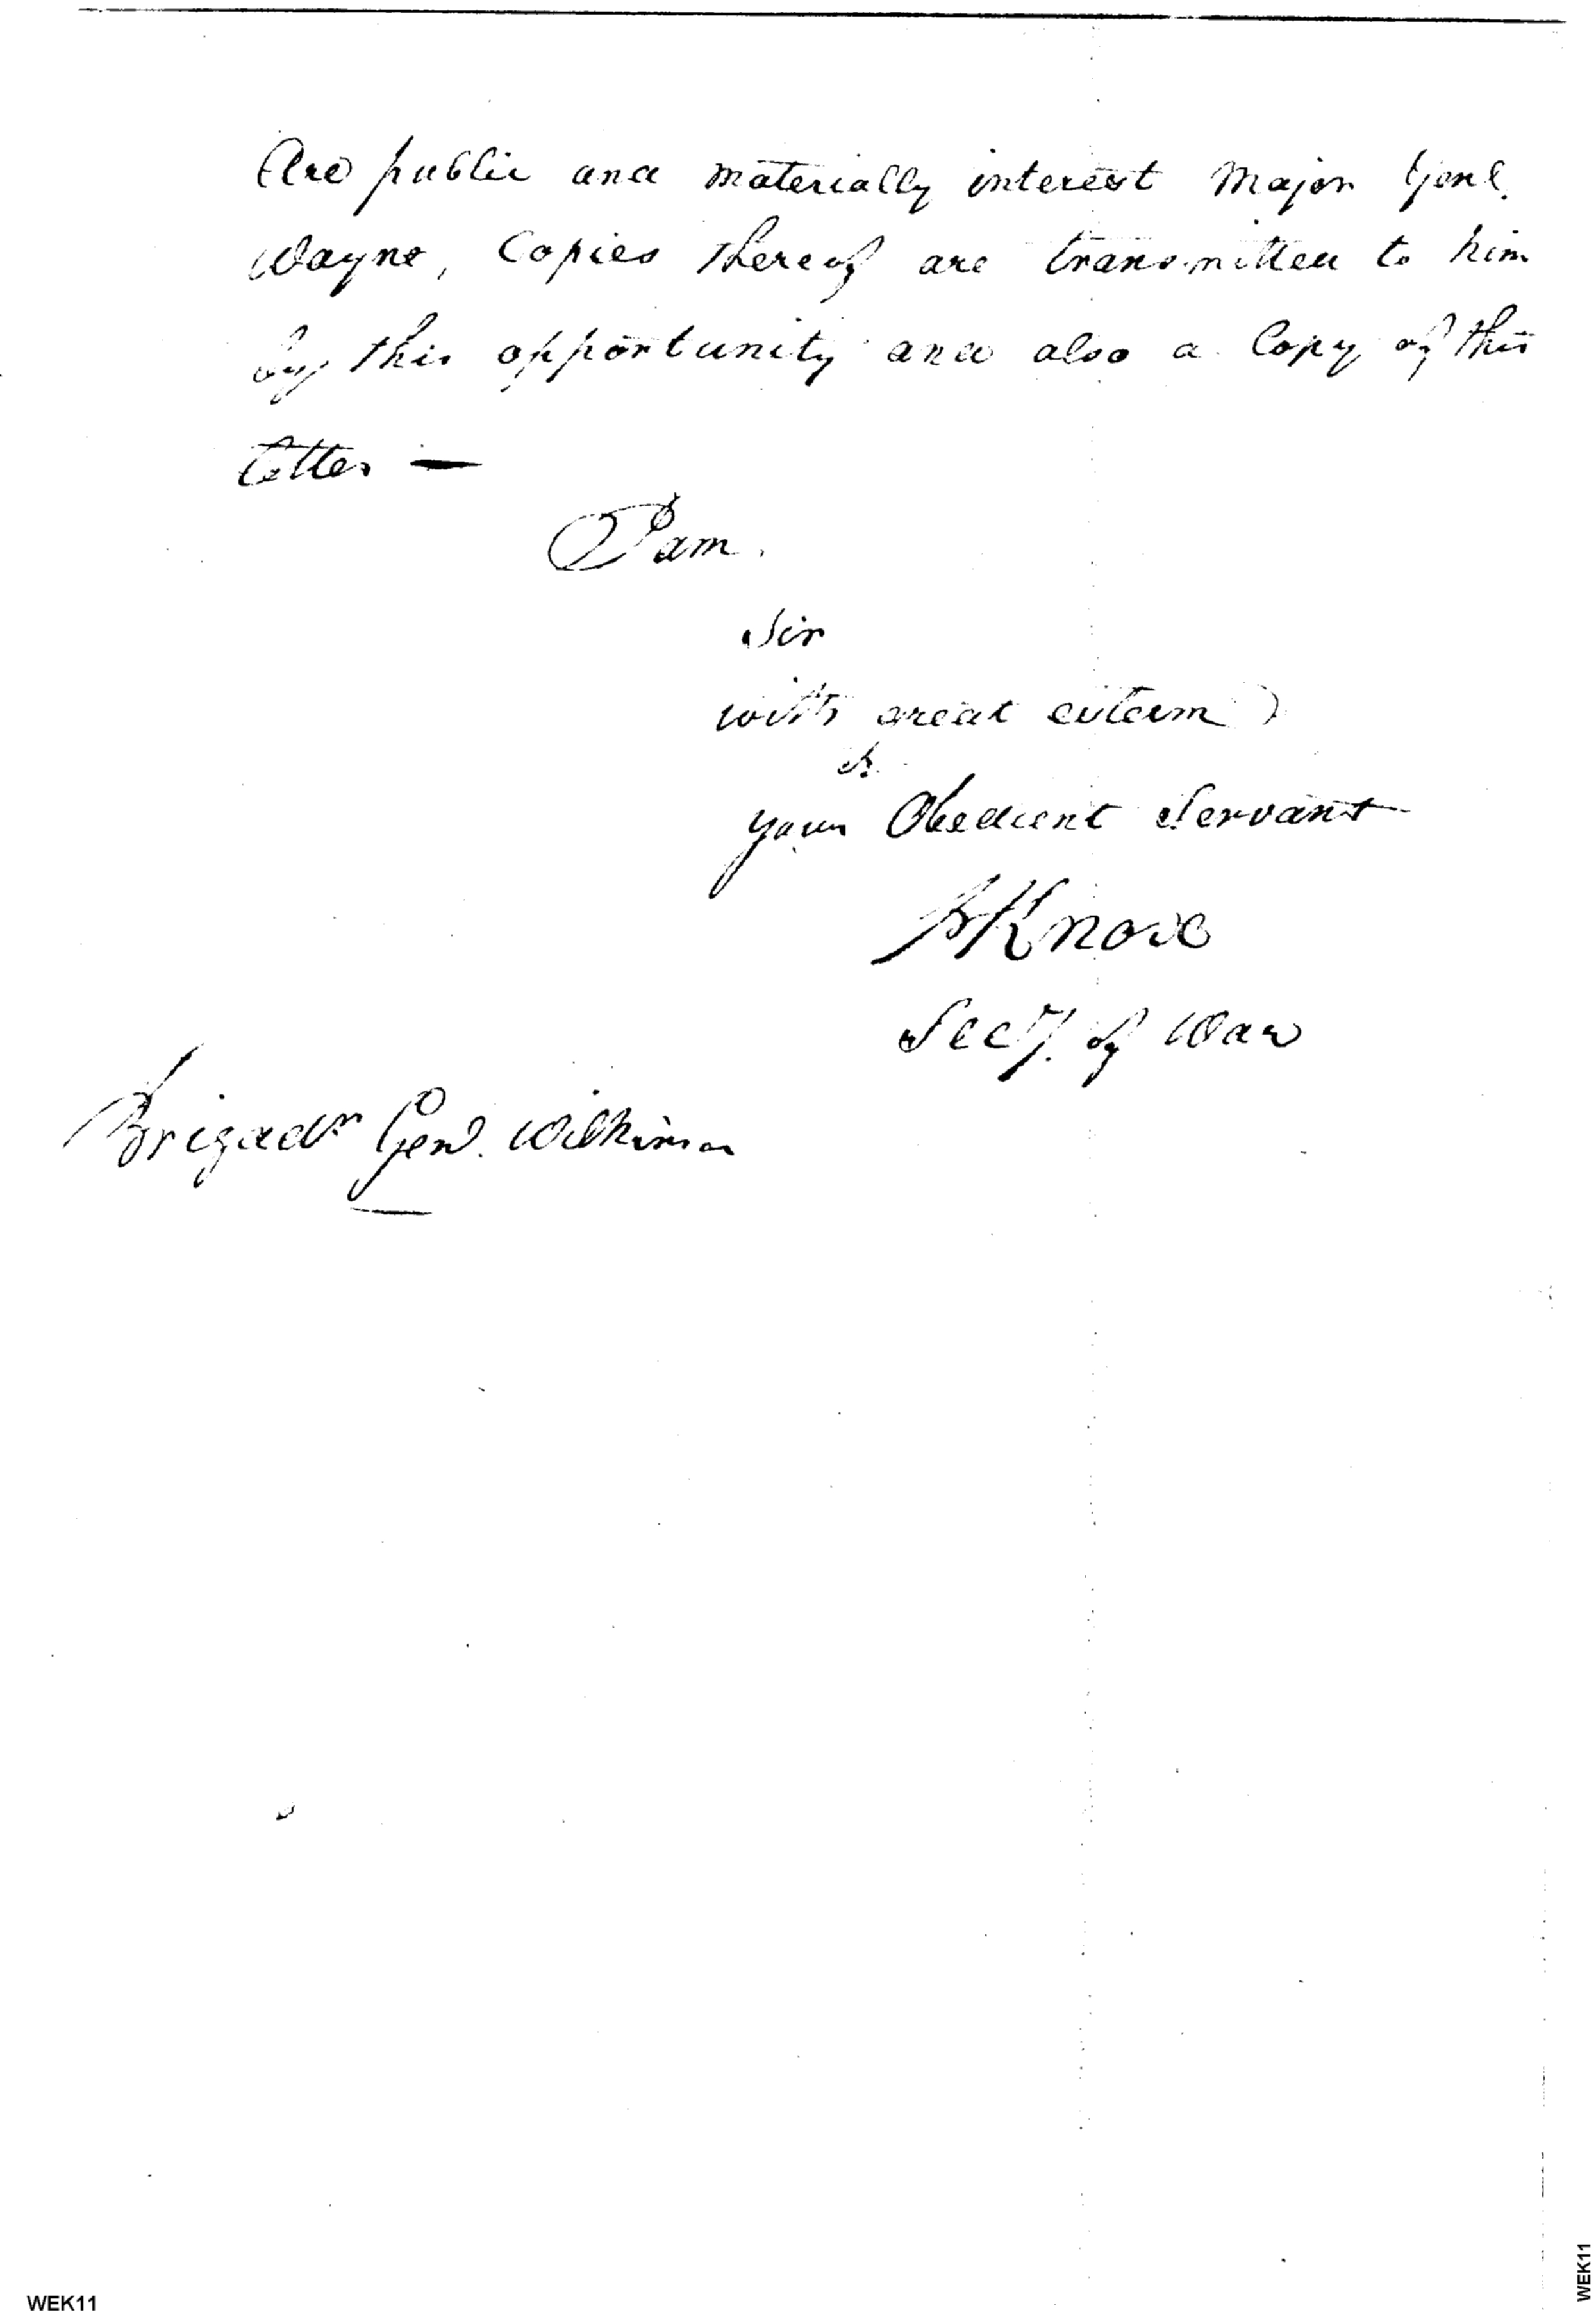 Are public and materially interest Major Genl.
Wayne, Copies thereof are transmitted to him
by this opportunity and also a Copy of this
letter —
I am.
Sir
with great esteem
Your Obedient Servant
HKnox
Secy. of War
Brigadr Genl. Wilkinson
WEK11
WEK11